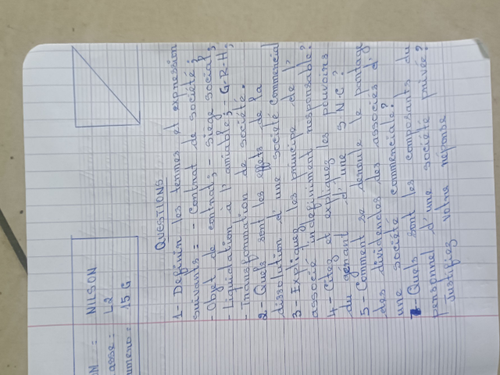 N : NILSON
asse : L2
umero : 15 G
QUESTIONS
1- Definir les termes et expression
suivants : - Contrat de société ;
- Objet de contrat ; - siège social ;
- Liquidation à l'amiable ; - G-R-H ;
- Transformation de société.
2- Quels sont les effets de la
dissolution d'une société commercial
3- Expliquez les principe de l'
associé indefiniment responsable?
4- Citez et expliquez les pouvoirs
du gerant d'une S.N.C ?
5- Comment se deroule le partage
des dividendes des associés d'
une société commerciale?
- Quels sont les composants du
personnel d'une société privée?
Justifiez votre reponse